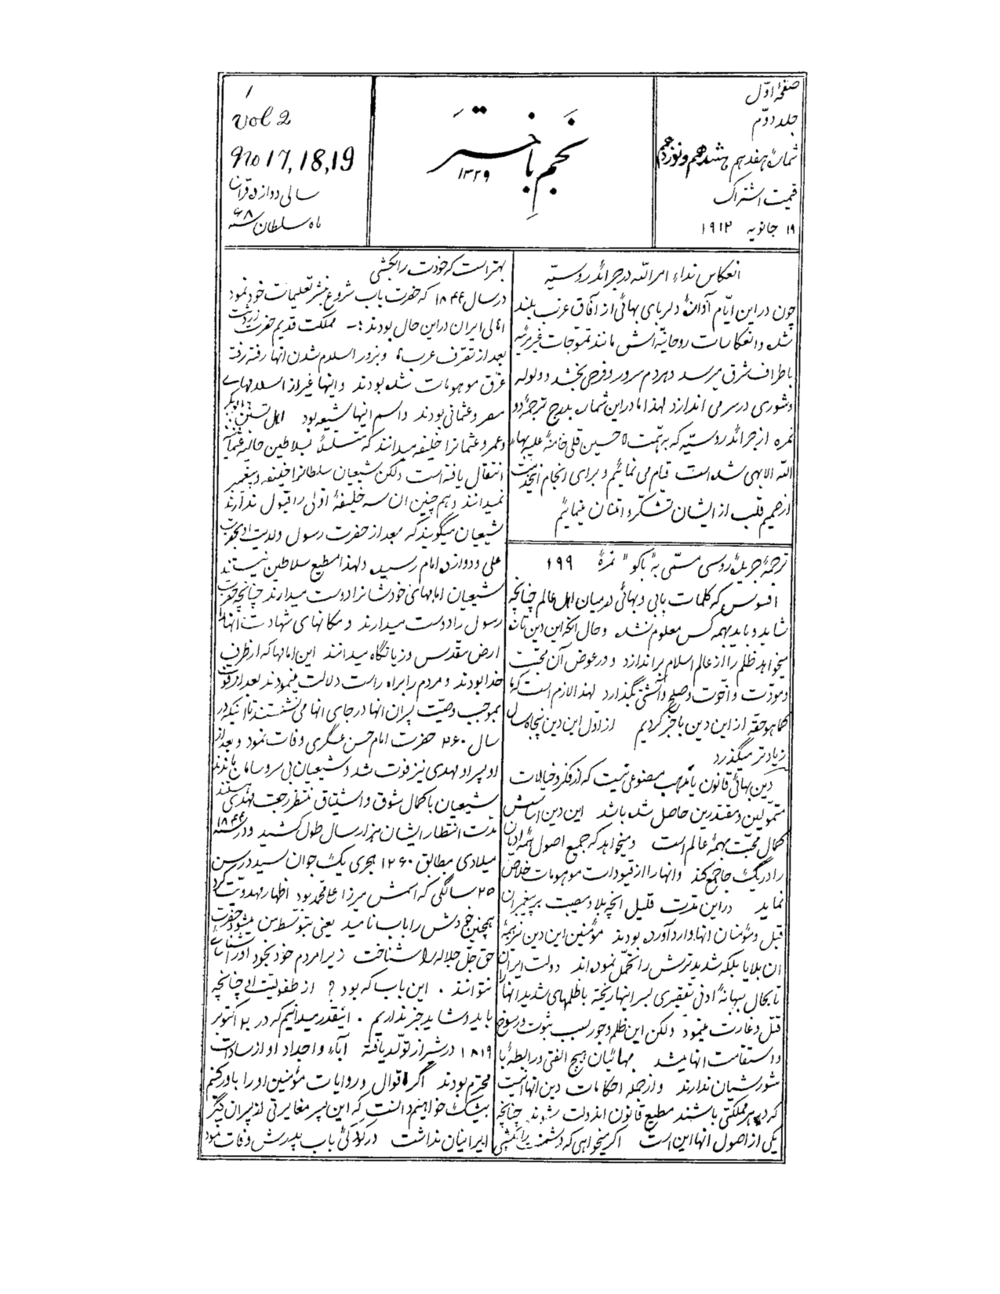 صفحهٔ اوّل
جلد دوّم
شمارهٔ هفدهم هشدهم و نوزدهم
قیمت اشتراک
۱۹ جانویه ۱۹۱۲
نجم باختر
۱۳۲۹
1
Vol 2
No 17,18,19
سالی دوازده قران
ماه سلطان سنه ۶۸
انعکاس نداء امرالله در جرائد روسیّه
چون در این ایّام آوازهٔ دلربای بهائی از آفاق غرب بلند
شده و انعکاسات روحانیّه‌اش مانند تموجات
باطراف شرق میرسد و هر دم سرور و فرحی بخشد و ولوله
و شوری در سر می اندازد لهذا ما در این شماره بدرج ترجمهٔ دو
نمره از جرائد روسیّه که به همّت حسین قلی علیه بهاء
الله الابهی شده است قیام می نمائیم و برای انجام این خدمت
از صمیم قلب از ایشان تشکّر و امتنان مینمائیم
ترجمهٔ جریدهٔ روسی مسمّی به باکو " نمرهٔ ۱۹۹
افسوس که کلمات بابی و بهائی در میان اهل عالم چنانچه
شاید و باید بهمه کس معلوم نشده و حال آنکه این دین تازه
میخواهد ظلم را از عالم اسلام براندازد و در عوض آن محبّت
و مودّت و اخوّت و صلح و آشتی بگذارد لهذا لازم است که ما
کما هو حقّه از این دین باخبر گردیم از اوّل این دین پنجاه سال
زیادتر میگذرد
دین بهائی قانون یا مذهب مصنوعی نیست که از فکر و خیالات
متمولین و مقتدرین حاصل شده باشد این دین اساسش
کمال محبّت بهمهٔ عالم است و میخواهد که جمیع اصول همهٔ ادیان
را در یک جا جمع کند و آنها را از قیودات موهومات خلاص
نماید در این مدّت قلیل آنچه بلا و مصیبت بر پیغمبران
قبل و مؤمنان آنها وارد آورده بودند مؤمنین این دین نیز همهٔ
آن بلایا بلکه شدیدترش را تحمّل نموده‌اند دولت ایران
تا بحال ببهانهٔ ادنی تقصیری بسر آنها ریخته با ظلمهای شدید آنها را
قتل و غارت مینمود ولکن این ظلم و جور سبب ثبوت و رسوخ
و استقامت آنها میشد بهائیان هیچ الفتی و رابطهٔ با
شورشیان ندارند و از جمله احکامات دین آنها اینست
که در هر مملکتی باشند مطیع قانون آن دولت شوند چنانچه
یکی از اصول آنها این است اگر میخواهی که دشمنت را بکشی
بهتر است که خودت را بکشی
در سال ۱۸۴۴ که حضرت باب شروع بنشر تعلیمات خود نمود
اهالی ایران در این حال بودند :- مملکت قدیم حضرت زردشت
بعد از تصرّف عربها و بزور اسلام شدن آنها رفته رفته
غرق موهومات شده بودند و اینها غیر از اسلامهای
مصر و عثمانی بودند و اسم اینها شیعه بود اهل تسنّن ابابکر
و عمر و عثمان را خلیفه میدانند که متسلسلاً بسلاطین حالیه عثمانیه
انتقال یافته است ولکن شیعیان سلطان را خلیفهٔ پیغمبر
نمیدانند و همچنین آن سه خلیفهٔ اوّلی را قبول ندارند
شیعیان میگویند که بعد از حضرت رسول ولایت بحضرت
علی و دوازده امام رسید و لهذا مطیع سلاطین نیستند
شیعیان امامهای خودشان را دوست میدارند چنانچه حضرت
رسول را دوست میدارند و مکانهای شهادت آنها را
ارض مقدّس و زیارتگاه میدانند این امامها که از طرف
خدا بودند و مردم را براه راست دلالت مینمودند بعد از وفات
بموجب وصیّت پسران آنها در جای آنها می نشستند تا اینکه در
سال ۲۶۰ حضرت امام حسن عسگری وفات نمود و بعد از
او پسر او مهدی نیز فوت شد و شیعیان بی سر و سامان ماندند
شیعیان با کمال شوق و اشتیاق منتظر رجعت مهدی هستند
مدّت انتظار ایشان هزار سال طول کشید و در سنه ۱۸۴۴
میلادی مطابق ۱۲۶۰ هجری یک جوان سیّد در سن
۲۵ سالگی که اسمش میرزا علی محمّد بود اظهار مهدویّت کرد
همچنین خودش را باب نامید یعنی بتوسّط من میشود حضرت
حق جلّ جلاله را شناخت زیرا مردم خود بخود او را شناسائی
نتوانند . این باب که بود ؟ از طفولیّت او چنانچه
باید و شاید خبر نداریم . اینقدر میدانیم که در ۲۰ اکتوبر
۱۸۱۹ در شیراز تولّد یافته آباء و اجداد او از سادات
محترم بودند اگر اقوال و روایات مؤمنین او را باور کنیم
بیشک خواهیم دانست که این پسر مغایرتی از پسران دیگر
ایرانیان نداشت در کودکی باب پدرش وفات نمود